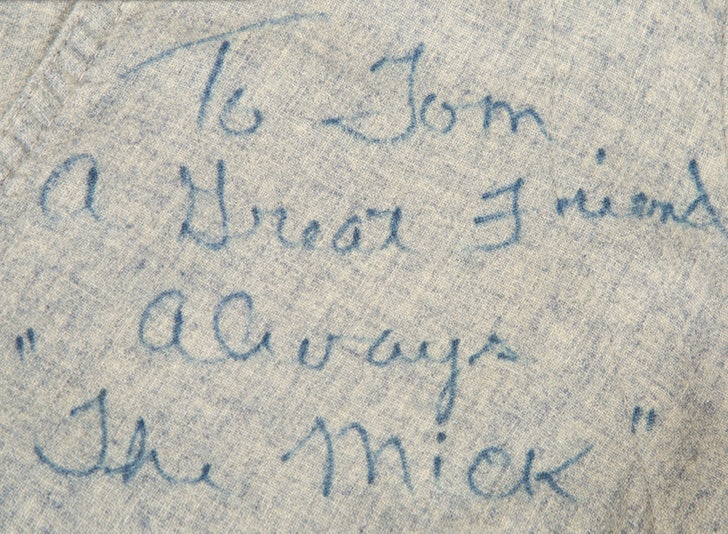 To Tom
A Great Friend
Always
"The Mick"